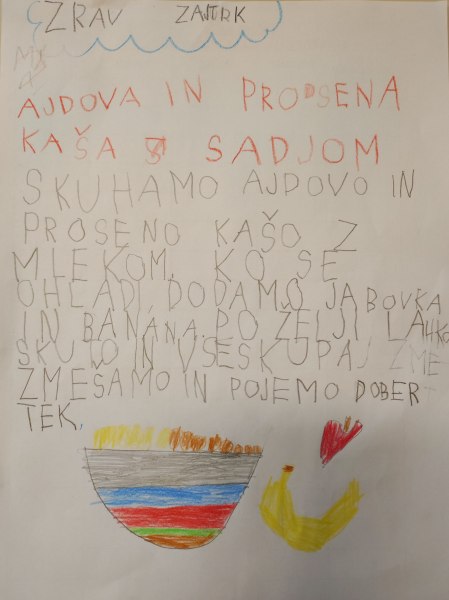 ZRAV ZAJTRK
AJDOVA IN PROSENA
KAŠA S SADJOM
SKUHAMO AJDOVO IN
PROSENO KAŠO Z
MLEKOM. KO SE
OHLADI, DODAMO JABOVKA
IN BANANA. PO ŽELJI LAHKO
SKUTO IN VSE SKUPAJ ZME
ZMEŠAMO IN POJEMO DOBER
TEK.